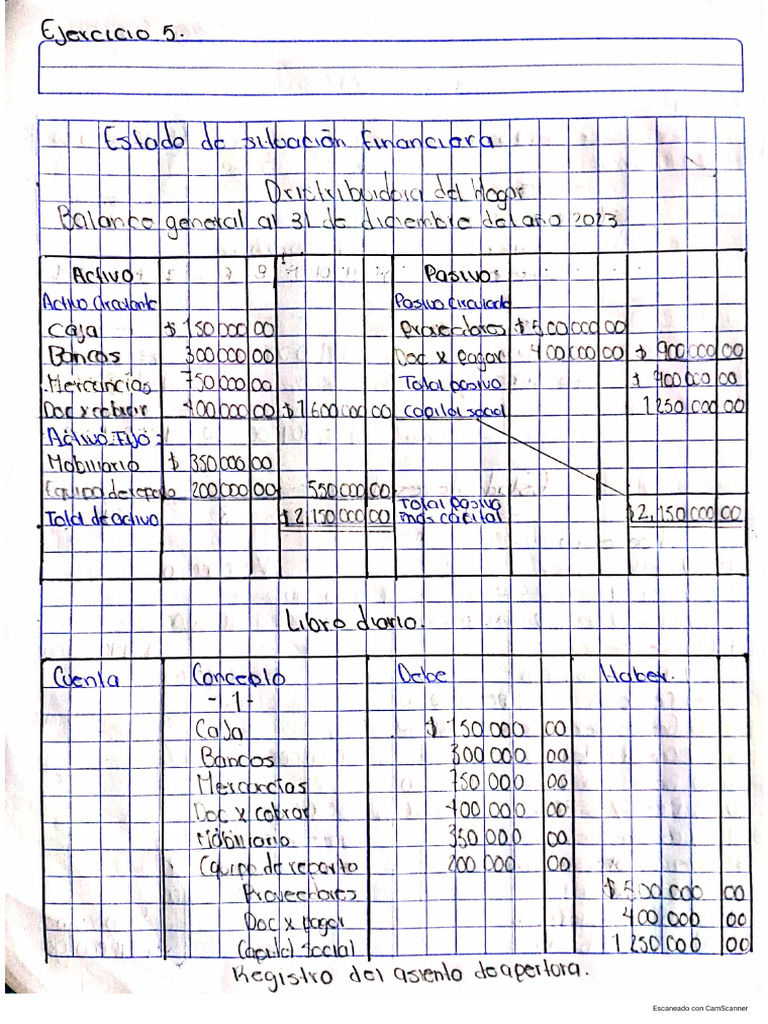 Ejercicio 5.
Estado de situación Financiera
Distribuidora del Hogar
Balance general al 31 de diciembre del año 2023
Activo: Pasivo:
Activo Circulante Pasivo Circulante
Caja $ 150 000 00 Proveedores $ 500 000 00
Bancos 300 000 00 Doc x pagar 400 000 00 $ 900 000 00
Mercancías 750 000 00 Total pasivo $ 900 000 00
Doc x cobrar 400 000 00 $ 1 600 000 00 Capital social 1 250 000 00
Activo Fijo:
Mobiliario $ 350 000 00
Equipo de reparto 200 000 00 550 000 00
Total de activo $ 2,150 000 00 Total pasivo mas capital $ 2,150 000 00
Libro diario.
Cuenta Concepto Debe Haber.
- 1 -
Caja $ 150 000 00
Bancos 300 000 00
Mercancías 750 000 00
Doc x cobrar 400 000 00
Mobiliario 350 000 00
Equipo de reparto 200 000 00
Proveedores $ 500 000 00
Doc x pagar 400 000 00
Capital social 1 250 000 00
Registro del asiento de apertura.
Escaneado con CamScanner